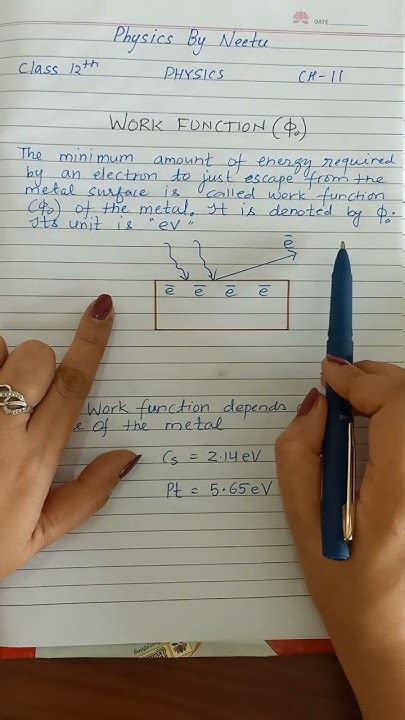 DATE
Physics By Neetu
Class 12th PHYSICS CH-11
WORK FUNCTION (ϕ₀)
The minimum amount of energy required
by an electron to just escape from the
metal surface is called work function
(ϕ₀) of the metal. It is denoted by ϕ₀.
Its unit is "eV"
ē
ē ē ē ē
Work function depends
of the metal
Cs = 2.14 eV
Pt = 5.65 eV